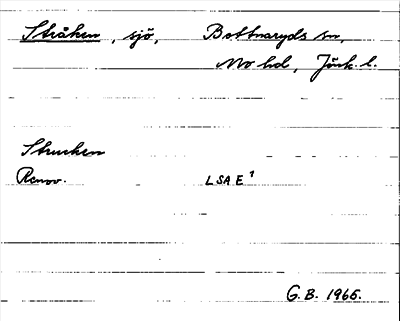 Stråken, sjö, Bottnaryds sn,
Mo hd, Jönk. l.
Struchen
Renov. LSA E 1
G. B. 1965.